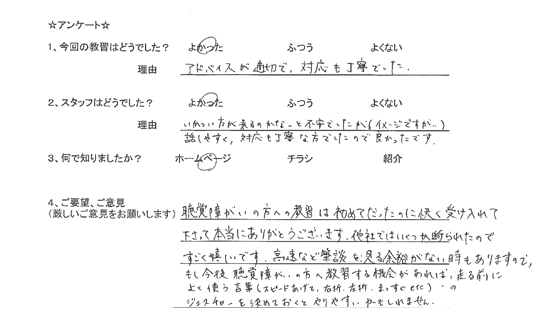 ☆アンケート☆
1、今回の教習はどうでした？　よかった　ふつう　よくない
理由　アドバイスが適切で、対応も丁寧でした.
2、スタッフはどうでした？　よかった　ふつう　よくない
理由　いかつい方が来るのかなーと不安でしたが(イメージですが..)
話しやすく、対応も丁寧な方でしたので良かったです.
3、何で知りましたか？　ホームページ　チラシ　紹介
4、ご要望、ご意見
(厳しいご意見をお願いします)
聴覚障がいの方への教習は初めてだったのに快く受け入れて
下さって本当にありがとうございます. 他社ではいくつか断られたので
すごく嬉しいです. 高速など筆談を見る余裕がない時もありますので、
もし今後聴覚障がいの方へ教習する機会があれば、走る前に
よく使う言葉(スピードあげて、右折、左折、まっすぐetc)の
ジェスチャーを決めておくとやりやすいかもしれません.